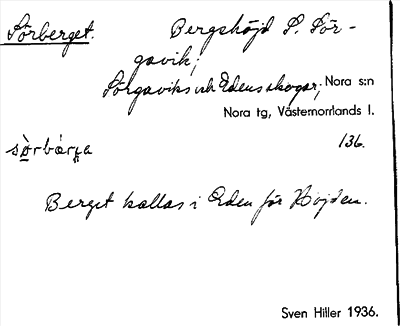 Sörberget. Bergshöjd S. Sör-
gavik;
Sörgaviks och Edens skogar; Nora s:n
Nora tg, Västernorrlands l.
sòrbær̀ja 136.
Berget kallas i Eden för Höjden.
Sven Hiller 1936.